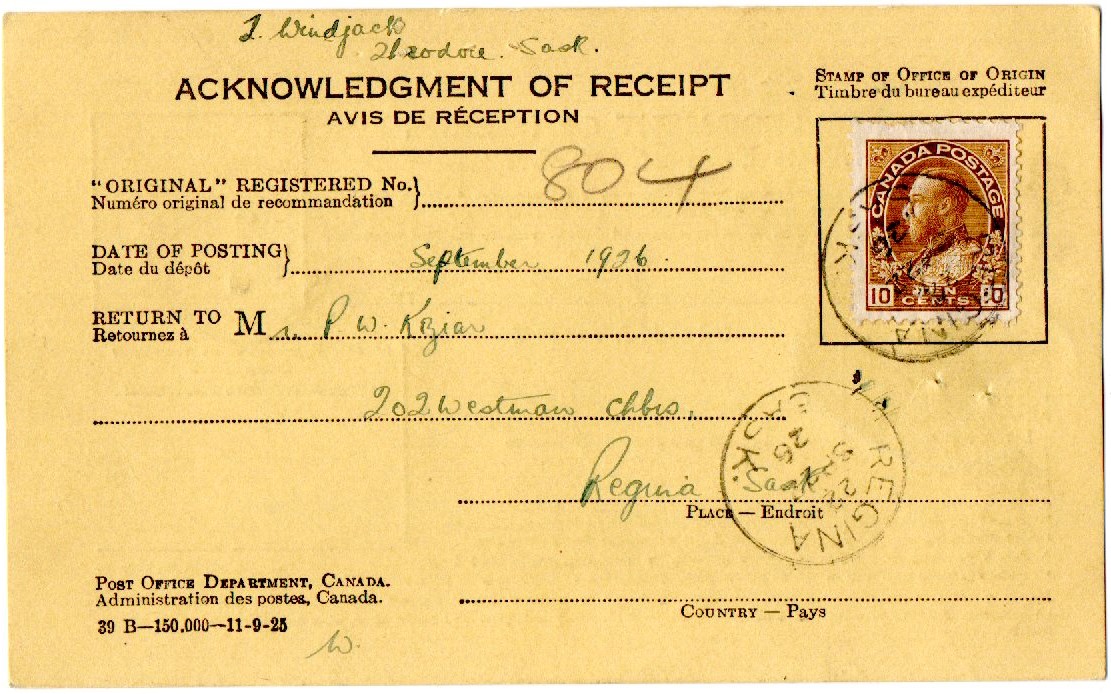 J. Windjack
Theodore Sask.
ACKNOWLEDGMENT OF RECEIPT
AVIS DE RÉCEPTION
STAMP OF OFFICE OF ORIGIN
Timbre du bureau expéditeur
CANADA POSTAGE
10 TEN CENTS 10
"ORIGINAL" REGISTERED No.
Numéro original de recommandation
804
DATE OF POSTING
Date du dépôt
September 1926.
RETURN TO
Retournez à
Mr. P. W. Kziar
202 Westman Chbrs.
Regina Sask
PLACE — Endroit
REGINA
SASK.
26
POST OFFICE DEPARTMENT, CANADA.
Administration des postes, Canada.
COUNTRY — Pays
39 B—150,000—11-9-25
W.